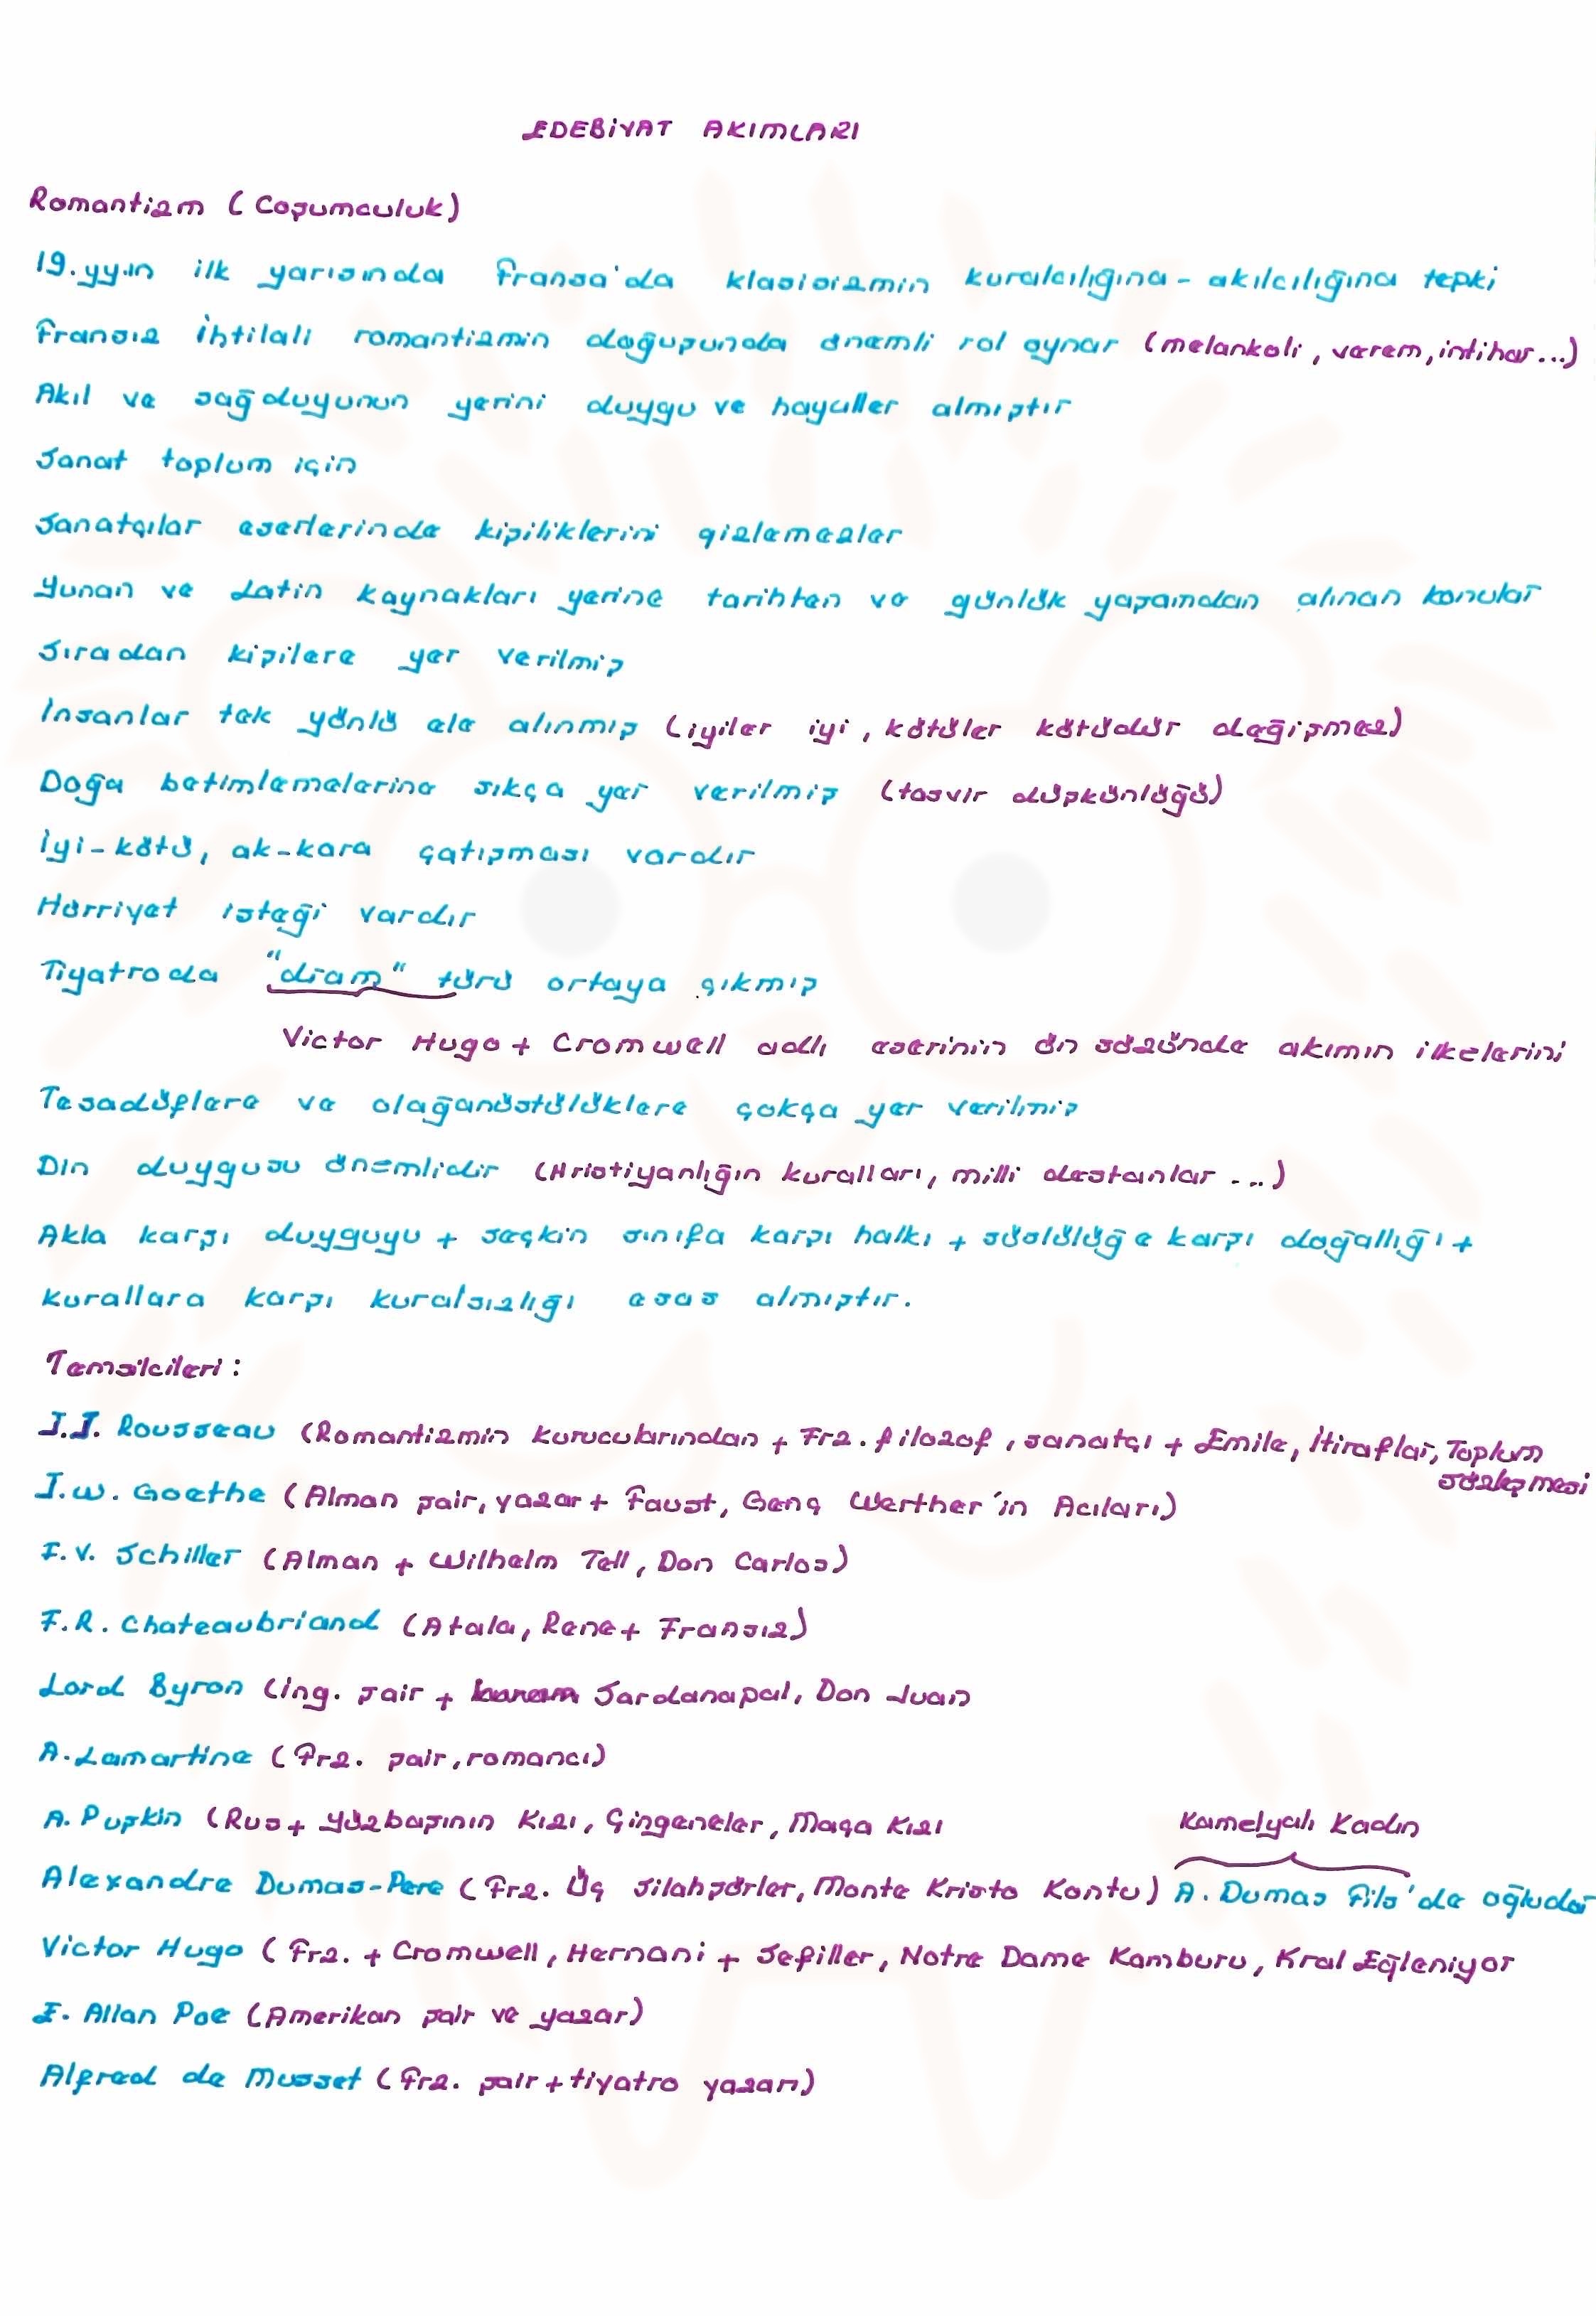 EDEBİYAT AKIMLARI
Romantizm (Coşumculuk)
19.yy.ın ilk yarısında Fransa'da klasisizmin kuralcılığına - akılcılığına tepki
Fransız İhtilali romantizmin doğuşunda önemli rol oynar (melankoli, verem, intihar...)
Akıl ve sağduyunun yerini duygu ve hayaller almıştır
Sanat toplum için
Sanatçılar eserlerinde kişiliklerini gizlemezler
Yunan ve Latin kaynakları yerine tarihten ve günlük yaşamdan alınan konular
Sıradan kişilere yer verilmiş
İnsanlar tek yönlü ele alınmış (iyiler iyi, kötüler kötüdür değişmez)
Doğa betimlemelerine sıkça yer verilmiş (tasvir düşkünlüğü)
İyi-kötü, ak-kara çatışması vardır
Hürriyet isteği vardır
Tiyatroda "dram" türü ortaya çıkmış
Victor Hugo + Cromwell adlı eserinin ön sözünde akımın ilkelerini
Tesadüflere ve olağanüstülüklere çokça yer verilmiş
Din duygusu önemlidir (Hristiyanlığın kuralları, milli destanlar ...)
Akla karşı duyguyu + seçkin sınıfa karşı halkı + süslülüğe karşı doğallığı +
kurallara karşı kuralsızlığı esas almıştır.
Temsilcileri :
J.J. Rousseau (Romantizmin kurucularından + Frz. filozof, sanatçı + Emile, İtiraflar, Toplum
sözleşmesi
J.W. Goethe (Alman şair, yazar + Faust, Genç Werther'in Acıları)
F.V. Schiller (Alman + Wilhelm Tell, Don Carlos)
F.R. Chateaubriand (Atala, Rene + Fransız)
Lord Byron (ing. şair + Sardanapal, Don Juan
A. Lamartine (Frz. şair, romancı)
A. Puşkin (Rus + Yüzbaşının Kızı, Çingeneler, Maça Kızı
Kamelyalı Kadın
Alexandre Dumas-Pere (Frz. Üç Silahşörler, Monte Kristo Kontu) A. Dumas Fils'de oğludur
Victor Hugo (Frz. + Cromwell, Hernani + Sefiller, Notre Dame Kamburu, Kral Eğleniyor
E. Allan Poe (Amerikan şair ve yazar)
Alfred de Musset (Frz. şair + tiyatro yazarı)